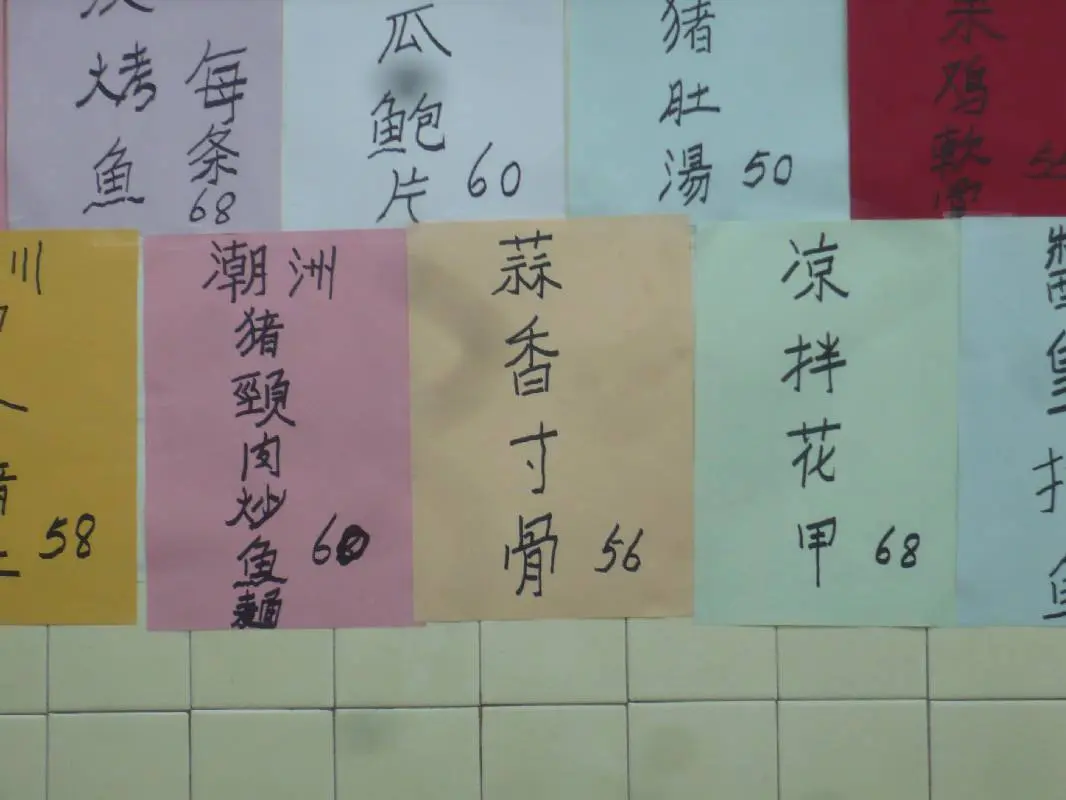 烤魚
每条
68
瓜鮑片
60
猪肚湯
50
鸡軟骨
川
58
潮洲
猪頸肉炒魚麵
60
蒜香寸骨
56
凉拌花甲
68